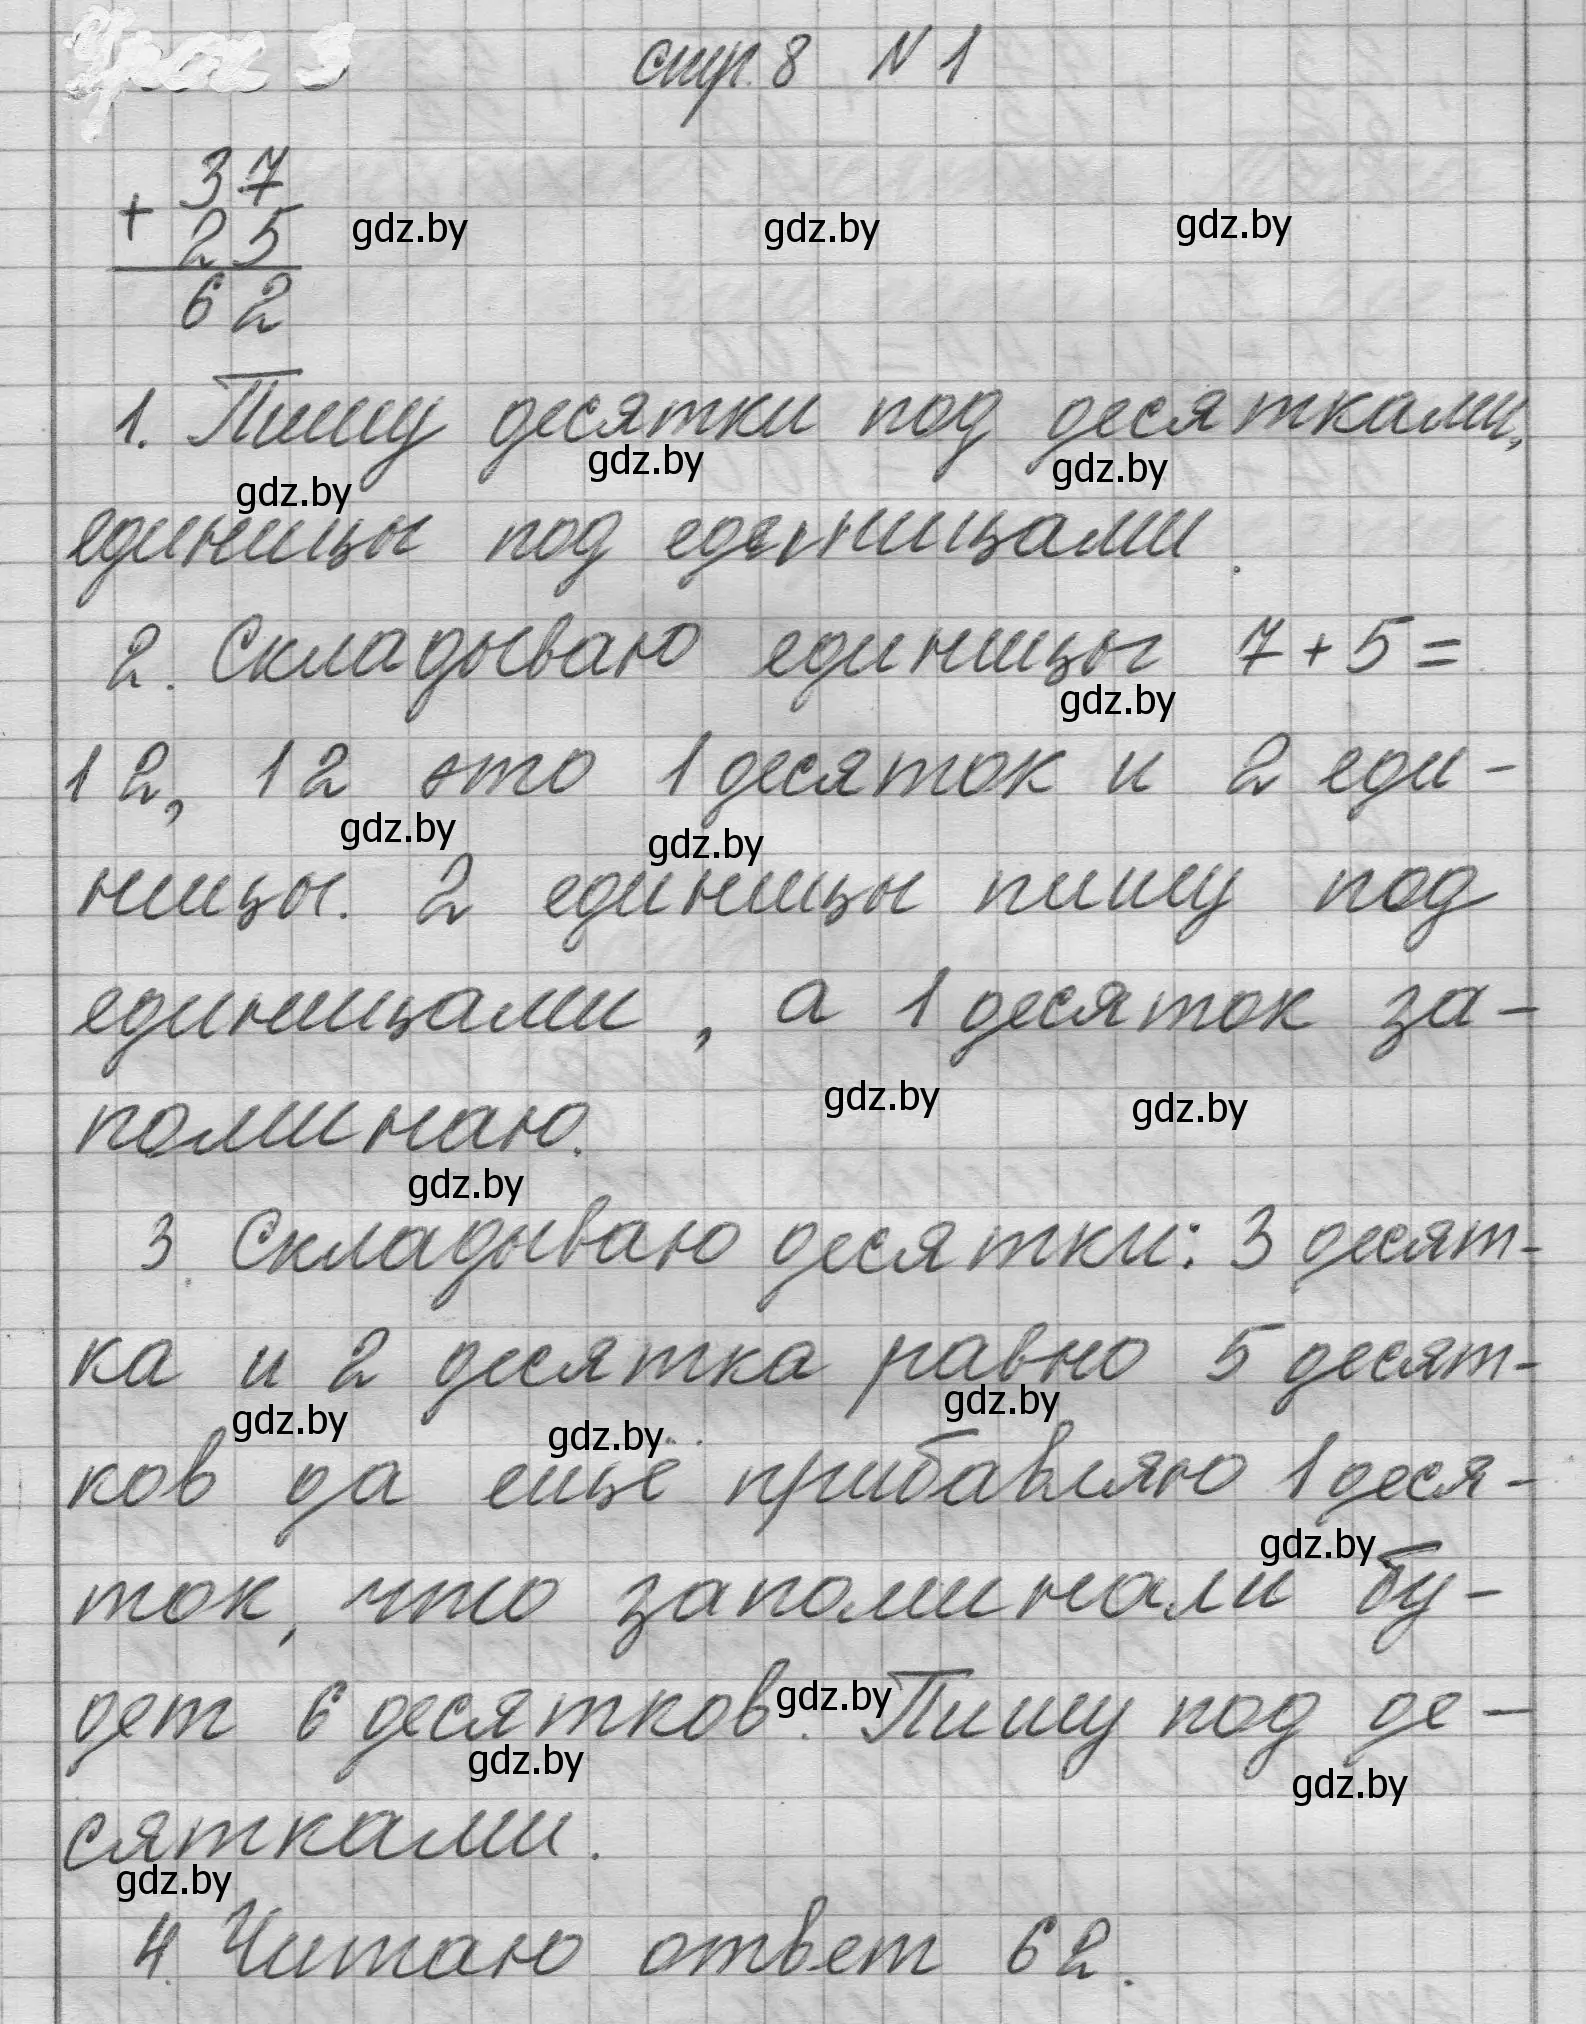 Урок 3 стр. 8 N 1
37
+ 25
62
gdz.by gdz.by gdz.by
1. Пишу десятки под десятками,
gdz.by gdz.by gdz.by
единицы под единицами.
2. Складываю единицы 7+5=
gdz.by
12, 12 это 1 десяток и 2 еди-
gdz.by gdz.by
ницы. 2 единицы пишу под
единицами, а 1 десяток за-
gdz.by gdz.by
поминаю.
gdz.by
3. Складываю десятки: 3 десят-
ка и 2 десятка равно 5 десят-
gdz.by gdz.by gdz.by
ков да ещё прибавляю 1 деся-
gdz.by
ток, что запоминали бу-
дет 6 десятков. Пишу под де-
gdz.by gdz.by gdz.by
сятками.
gdz.by
4. Читаю ответ 62.